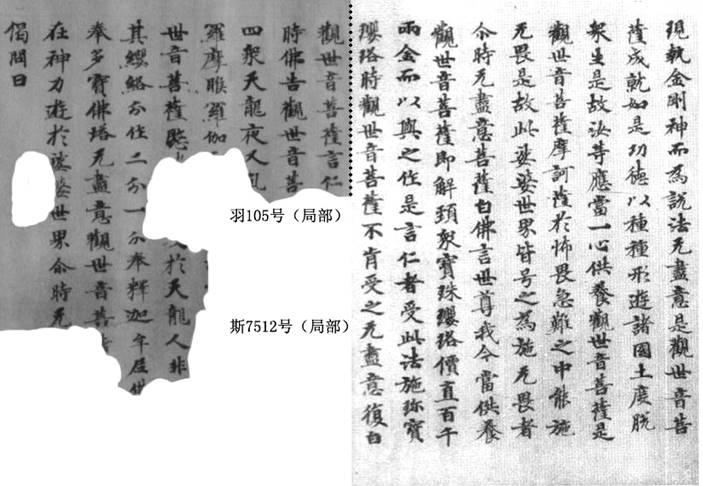 現執金剛神而為說法无盡意是觀世音菩
薩成就如是功德以種種形遊諸國土度脫
衆生是故汝等應當一心供養觀世音菩薩是
觀世音菩薩摩訶薩於怖畏急難之中能施
无畏是故此娑婆世界皆号之為施无畏者
尒時无盡意菩薩白佛言世尊我今當供養
觀世音菩薩即解頸衆寶珠瓔珞價直百千
兩金而以與之作是言仁者受此法施珎寶
瓔珞時觀世音菩薩不肯受之无盡意復白
觀世音菩薩言仁
時佛告觀世音菩
四衆天龍夜叉
羅摩睺羅伽
世音菩薩愍 於天龍人非
其纓絡分作二分一分奉釋迦牟尼
奉多寶佛塔无盡意觀世音菩
在神力遊於娑婆世界尒時无
偈問曰
羽105号（局部）
斯7512号（局部）